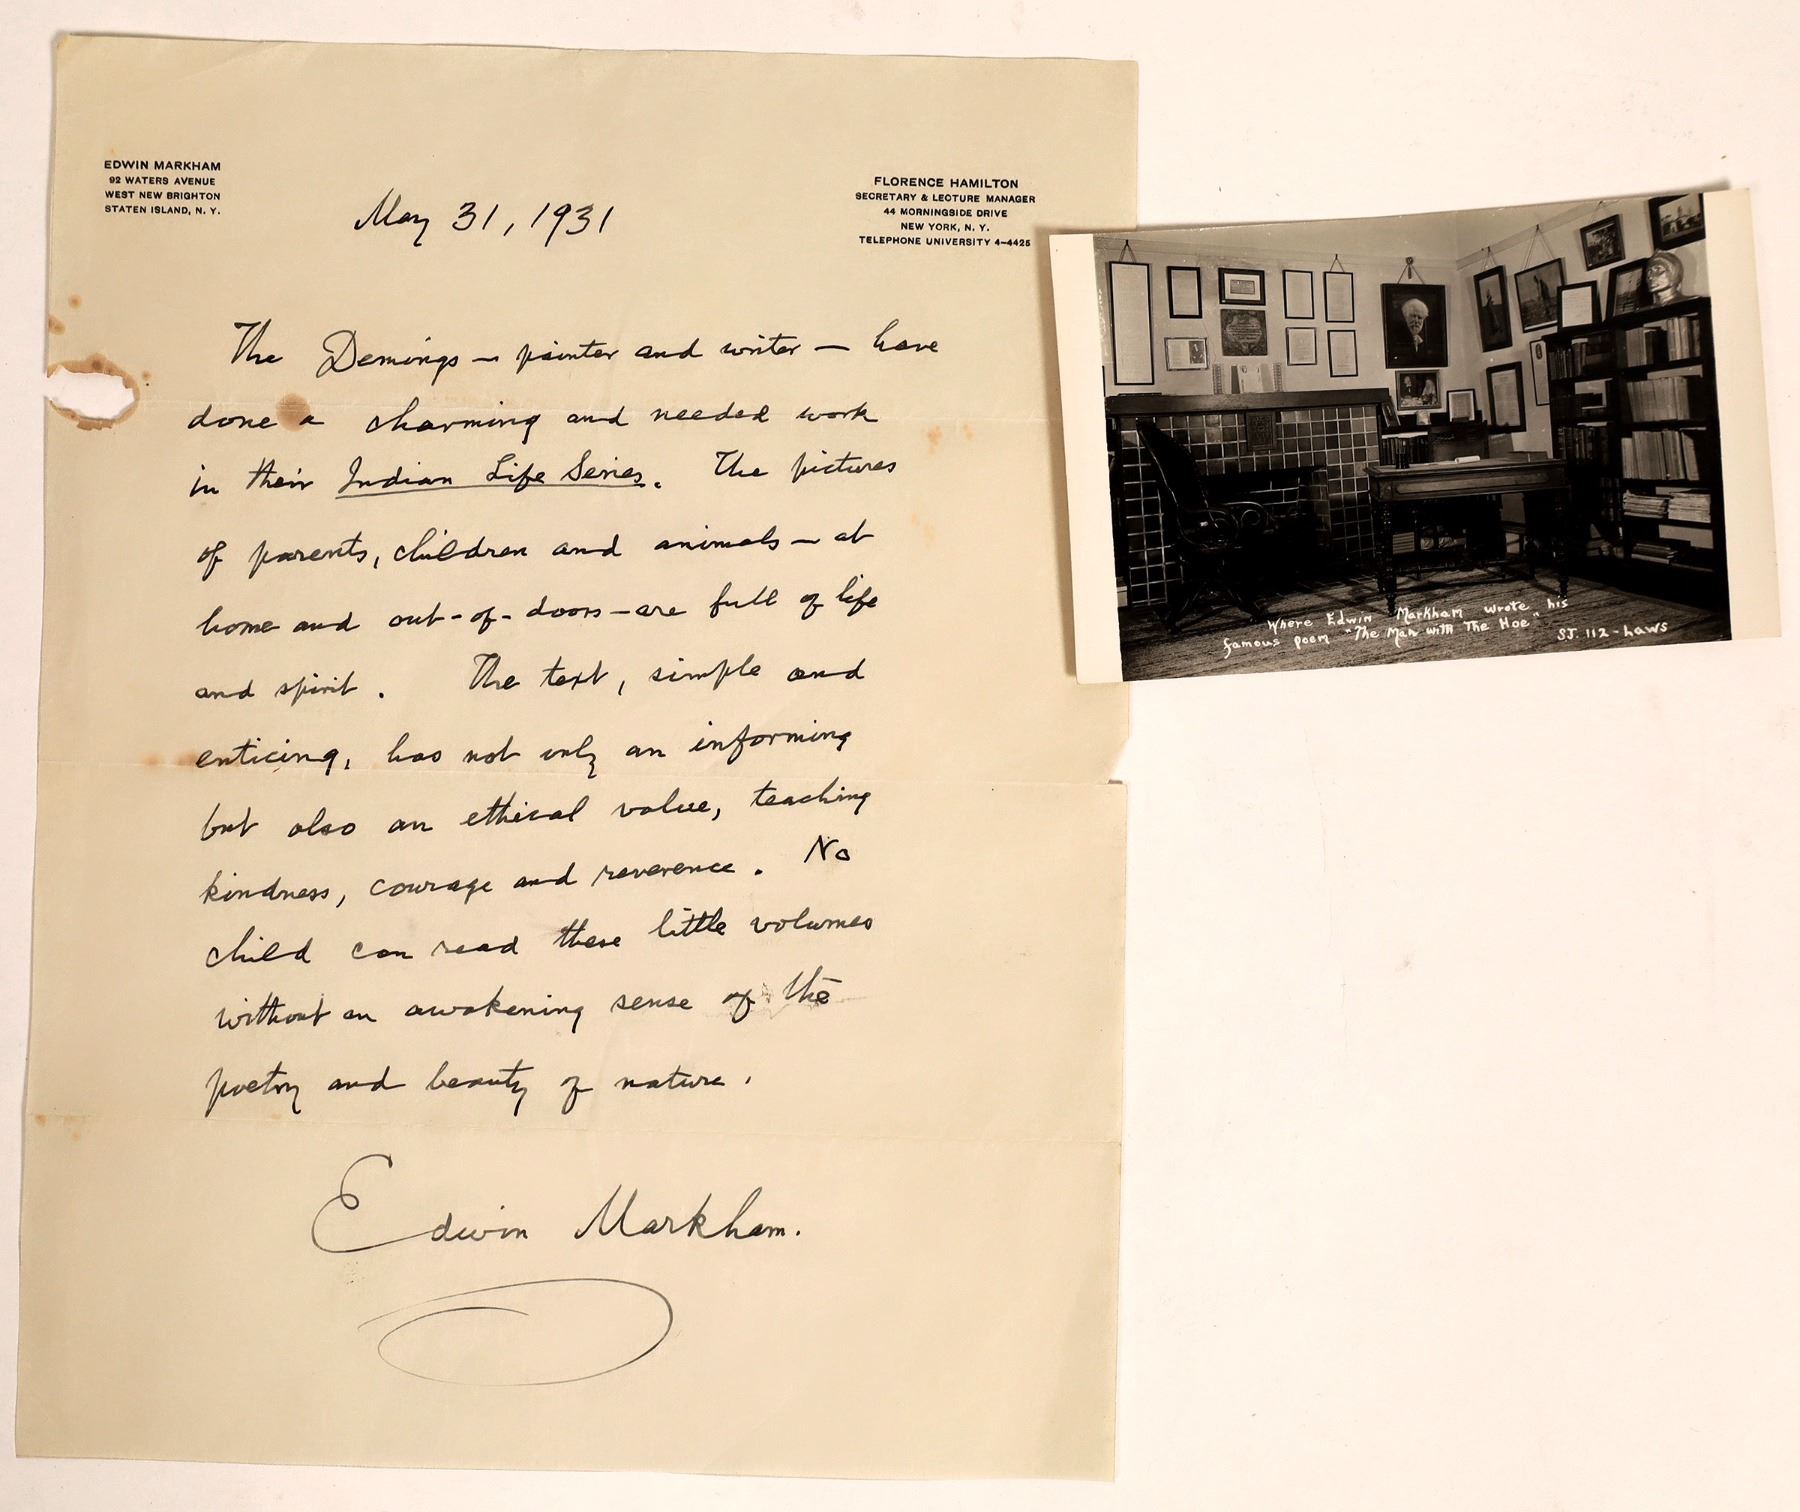 EDWIN MARKHAM
92 WATERS AVENUE
WEST NEW BRIGHTON
STATEN ISLAND, N. Y.
FLORENCE HAMILTON
SECRETARY & LECTURE MANAGER
44 MORNINGSIDE DRIVE
NEW YORK, N. Y.
TELEPHONE UNIVERSITY 4-4425
May 31, 1931
The Demings — painter and writer — have
done a charming and needed work
in their Indian Life Series. The pictures
of parents, children and animals — at
home and out-of-doors — are full of life
and spirit. The text, simple and
enticing, has not only an informing
but also an ethical value, teaching
kindness, courage and reverence. No
child can read these little volumes
without an awakening sense of the
poetry and beauty of nature.
Edwin Markham.
Where Edwin Markham wrote his
famous poem "The Man with The Hoe"
SJ. 112-Laws